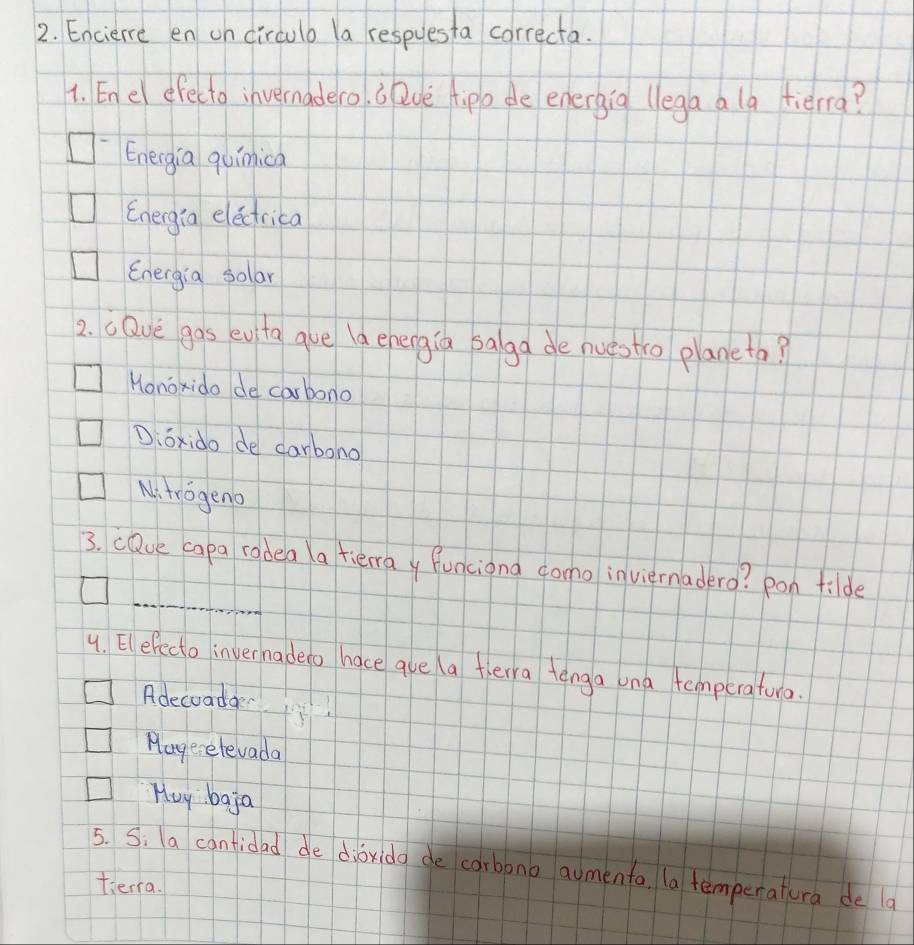 2. Encierre en un círculo la respuesta correcta.
1. En el efecto invernadero. ¿Qué tipo de energía llega a la tierra?
Energía química
Energía eléctrica
Energía solar
2. ¿Qué gas evita que la energía salga de nuestro planeta?
Monóxido de carbono
Dióxido de carbono
Nitrógeno
3. ¿Que capa rodea la tierra y funciona como inviernadero? pon tilde
4. El efecto invernadero hace que la tierra tenga una temperatura.
Adecuada
elevada
Muy baja
5. Si la cantidad de dióxido de carbono aumenta, la temperatura de la
tierra.